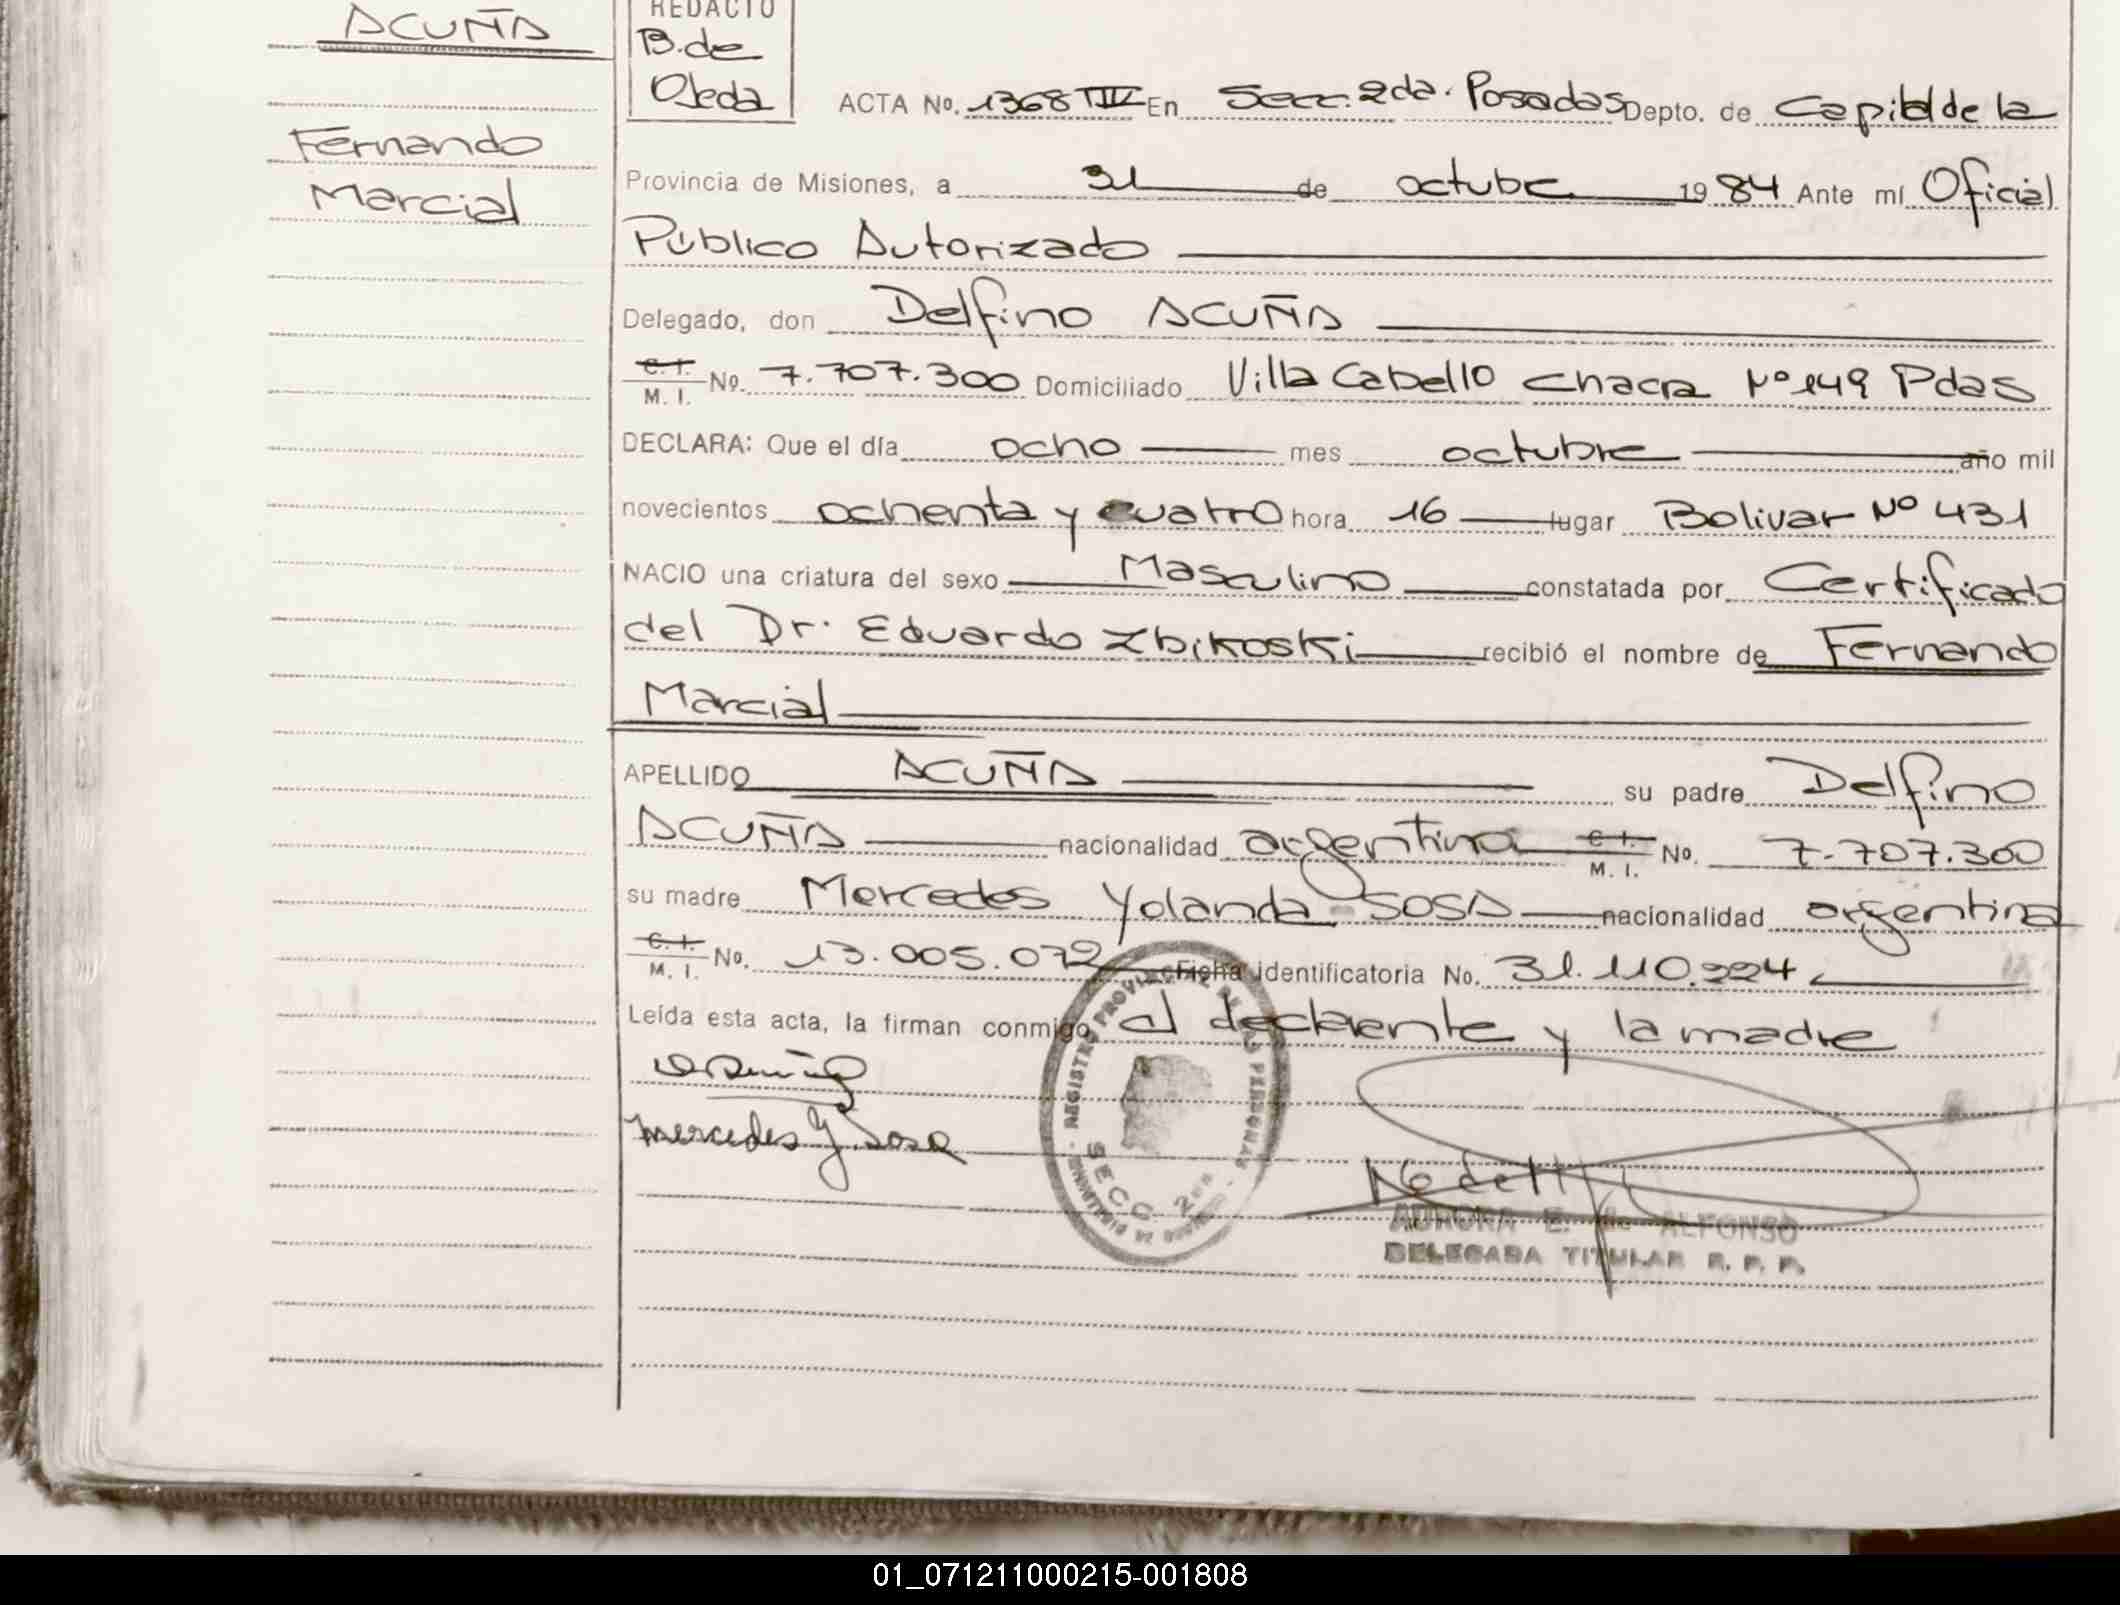 ACUÑA
Fernando
Marcial
REDACTO
B. de
Ojeda
ACTA No. 1368 TIV En Secc. 2da. Posadas Depto. de Capital de la
Provincia de Misiones, a 31 de octubre 1984 Ante mí Oficial
Público Autorizado
Delegado, don Delfino ACUÑA
C. I. M. I. No. 7.707.300 Domiciliado Villa Cabello Chacra Nº 149 Pdas
DECLARA: Que el día ocho mes octubre año mil
novecientos ochenta y cuatro hora 16 lugar Bolivar Nº 431
NACIO una criatura del sexo Masculino constatada por Certificado
del Dr. Eduardo Zbikoski recibió el nombre de Fernando
Marcial
APELLIDO ACUÑA su padre Delfino
ACUÑA nacionalidad argentina C. I. M. I. No. 7.707.300
su madre Mercedes Yolanda SOSA nacionalidad argentina
C. I. M. I. No. 13.005.072 Ficha Identificatoria No. 31.110.224
Leída esta acta, la firman conmigo el declarente y la madre
Mercedes Y. Sosa
REGISTRO PROVINCIAL DE LAS PERSONAS
SECC. 2da
AURORA E. ALFONSO
DELEGADA TITULAR R. P. P.
01_071211000215-001808